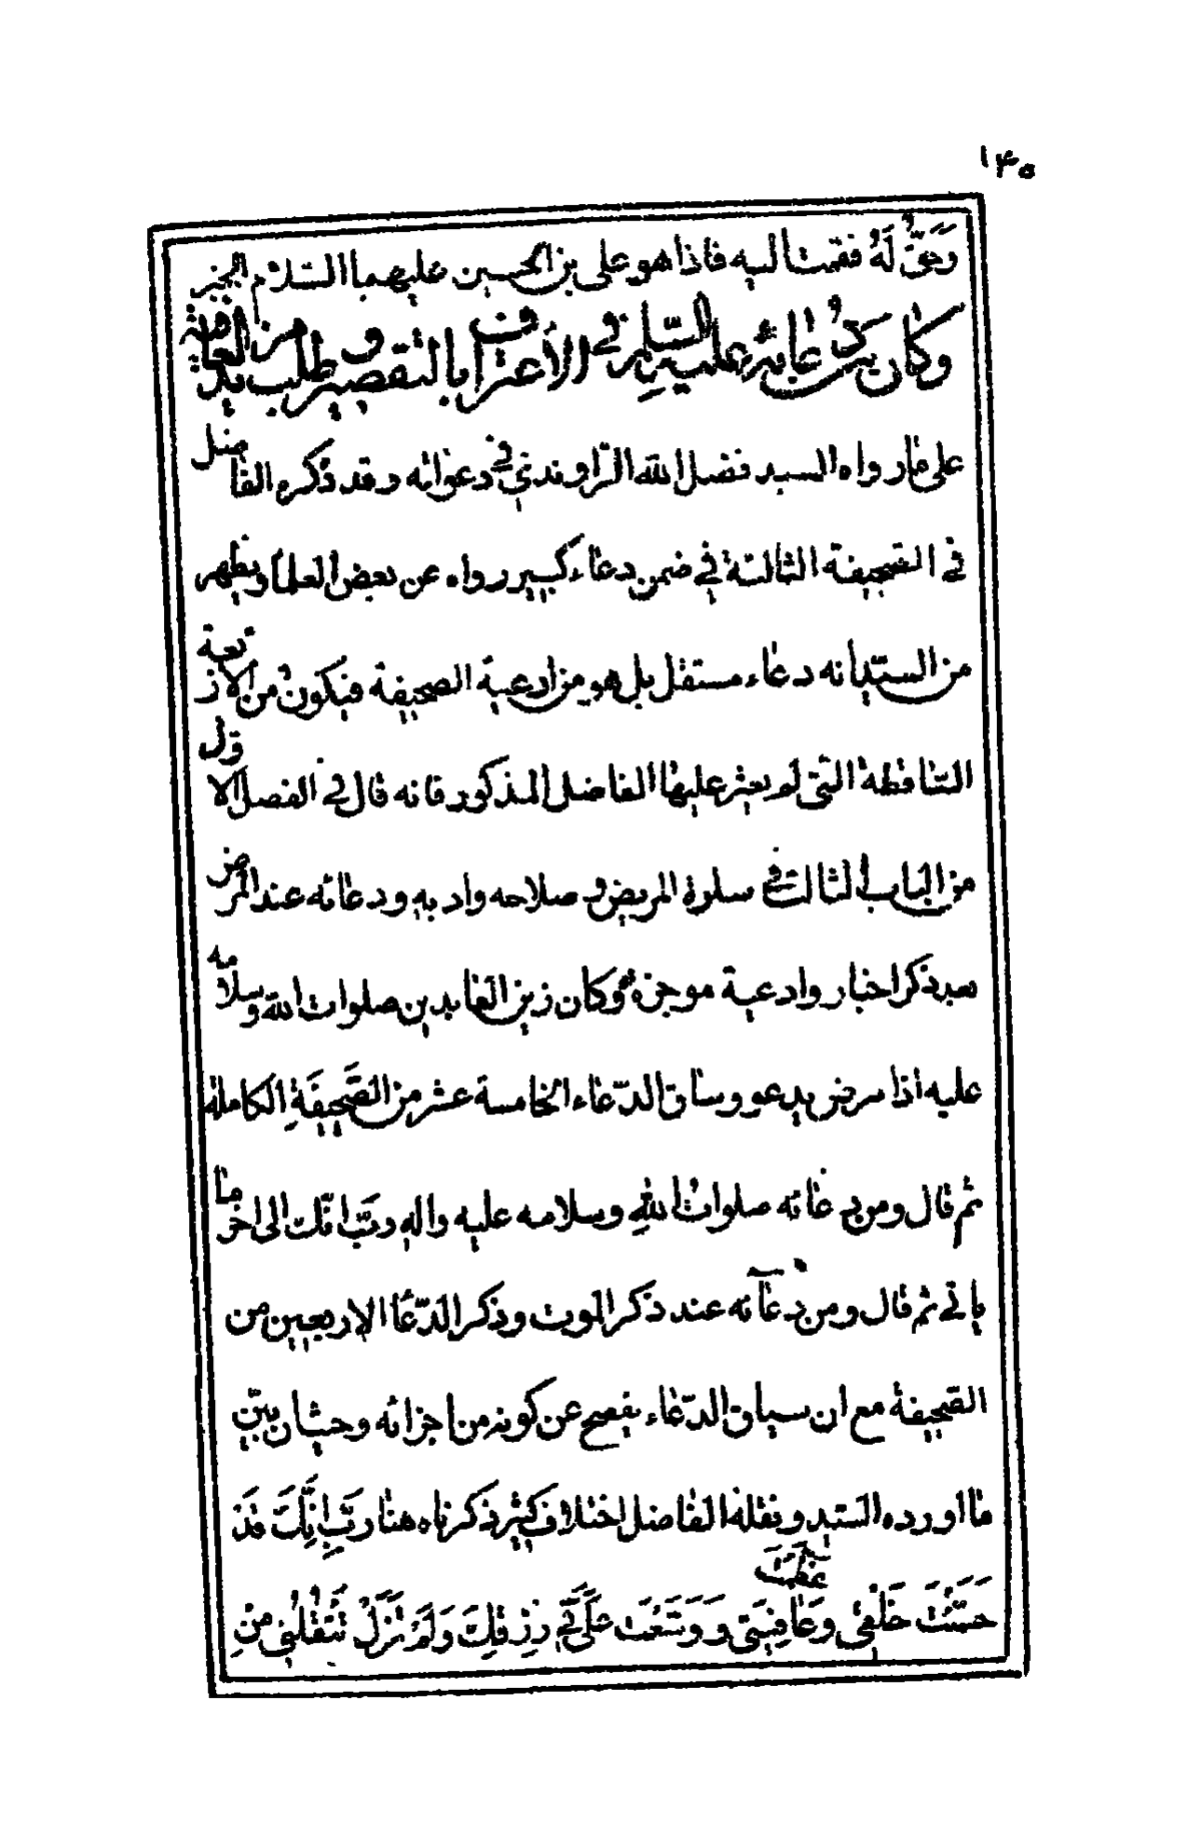 ۱۴۵
وَحَقٌّ لَهُ فقمت اليه فاذا هو على بن الحسين عليهما السّلام الخبر
وكان من دعائه عليه السّلام في الأعتراف بالتقصير وطلب من العافية
على ما رواه السيد فضل الله الرّاوندي في دعواته وقد ذكره الفاضل
في الصّحيفة الثالثة في ضمن دعاء كبير رواه عن بعض العلماء ويظهر
من السيّد انه دعاء مستقل بل هو من ادعية الصحيفة فيكون من الادعية
السّاقطة التي لم يعثر عليها الفاضل المذكور فانه قال في الفصل الاول
من الباب الثالث في سلوة المريض و صلاحه وادبه ودعائه عند المرض
بعد ذكر اخبار وادعية موجزة وكان زين العابدين صلوات الله وسلامه
عليه اذا مرض يدعو وساق الدّعاء الخامسة عشر من الصَّحيفَةِ الكاملة
ثم قال ومن دعائه صلوات اللهِ وسلامه عليه واله ربّ انّك الى اخر ما
ياتي ثم قال ومن دعآئه عند ذكر الموت وذكر الدّعا الاربعين من
الصّحيفة مع ان سياق الدّعاء يفصح عن كونه من اجزائه وحيث ان بين
ما اورده السّيد ونقله الفاضل اختلاف كثير ذكرناه هنا ربِّ اِنَّكَ قَد
حَسَّنْتَ خَلْقي وَعَافَيْتَني وَوَسَّعْتَ عَلَيَّ في رِزْقِكَ وَلَمْ تَزَلْ تَنْقُلُني مِنْ